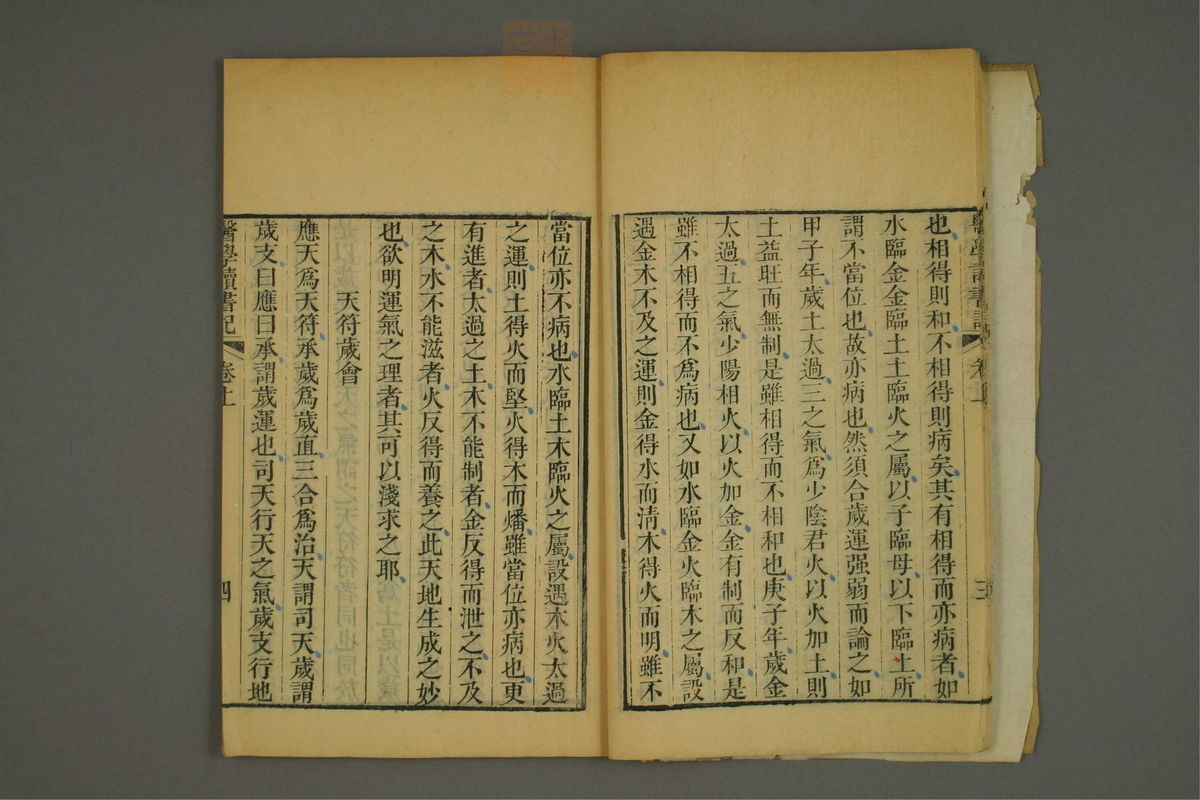 醫學讀書記 卷上 三
也相得則和不相得則病矣其有相得而亦病者如
水臨金金臨土土臨火之屬以子臨母以下臨上所
謂不當位也故亦病也然須合歲運强弱而論之如
甲子年歲土太過三之氣爲少陰君火以火加土則
土益旺而無制是雖相得而不相和也庚子年歲金
太過五之氣少陽相火以火加金金有制而反和是
雖不相得而不爲病也又如水臨金火臨木之屬設
遇金木不及之運則金得水而清木得火而明雖不
當位亦不病也水臨土木臨火之屬設遇木火太過
之運則土得火而堅火得木而燔雖當位亦病也更
有進者太過之土木不能制者金反得而泄之不及
之木水不能滋者火反得而養之此天地生成之妙
也欲明運氣之理者其可以淺求之耶
天符歲會
應天爲天符承歲爲歲直三合爲治天謂司天歲謂
歲支曰應曰承謂歲運也司天行天之氣歲支行地
醫學讀書記 卷上 四